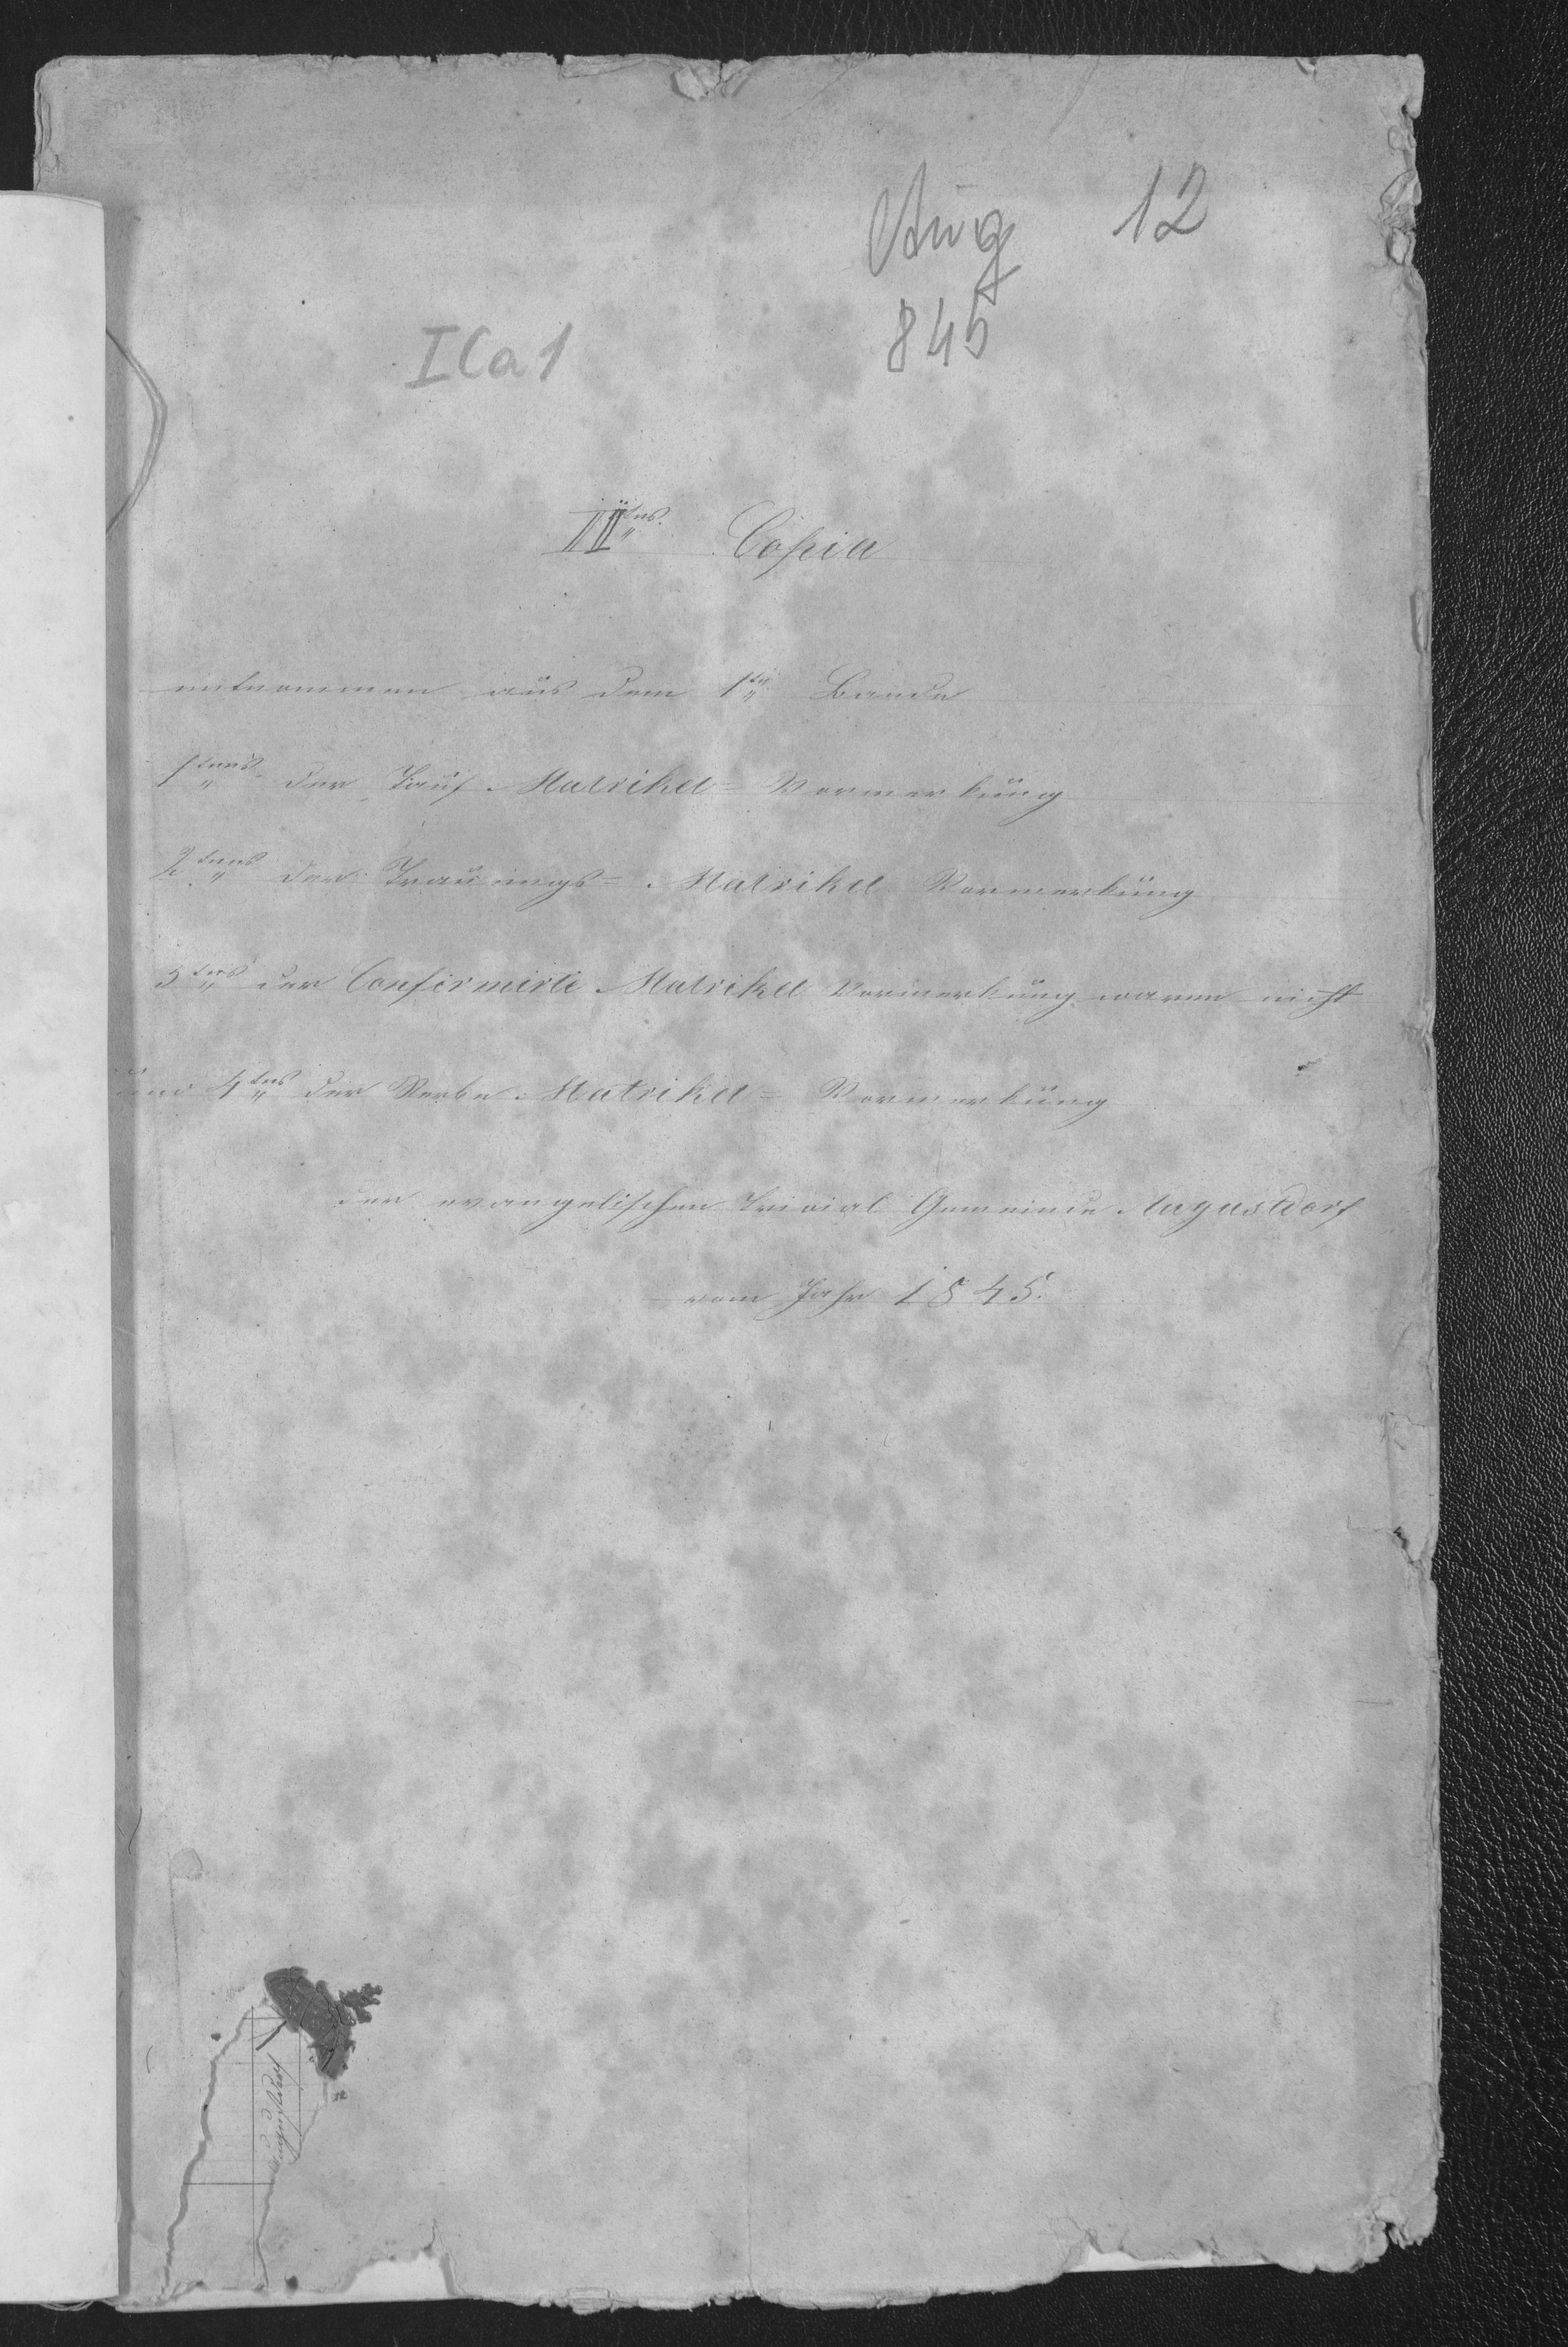 Aug 12
845
ICa1
IItes Copia
entnommen aus dem 1ten Bande
1tens der Tauf-Matrikel= Vormerkung
2tens der Trauungs= Matrikel Vormerkung
3tens der Confirmirte Matrikel Vormerkung waren nicht
und 4tens der Sterbe-Matrikel= Vormerkung
der evangelischen Trivial Gemeinde Augustdorf
vom Jahr 1845.